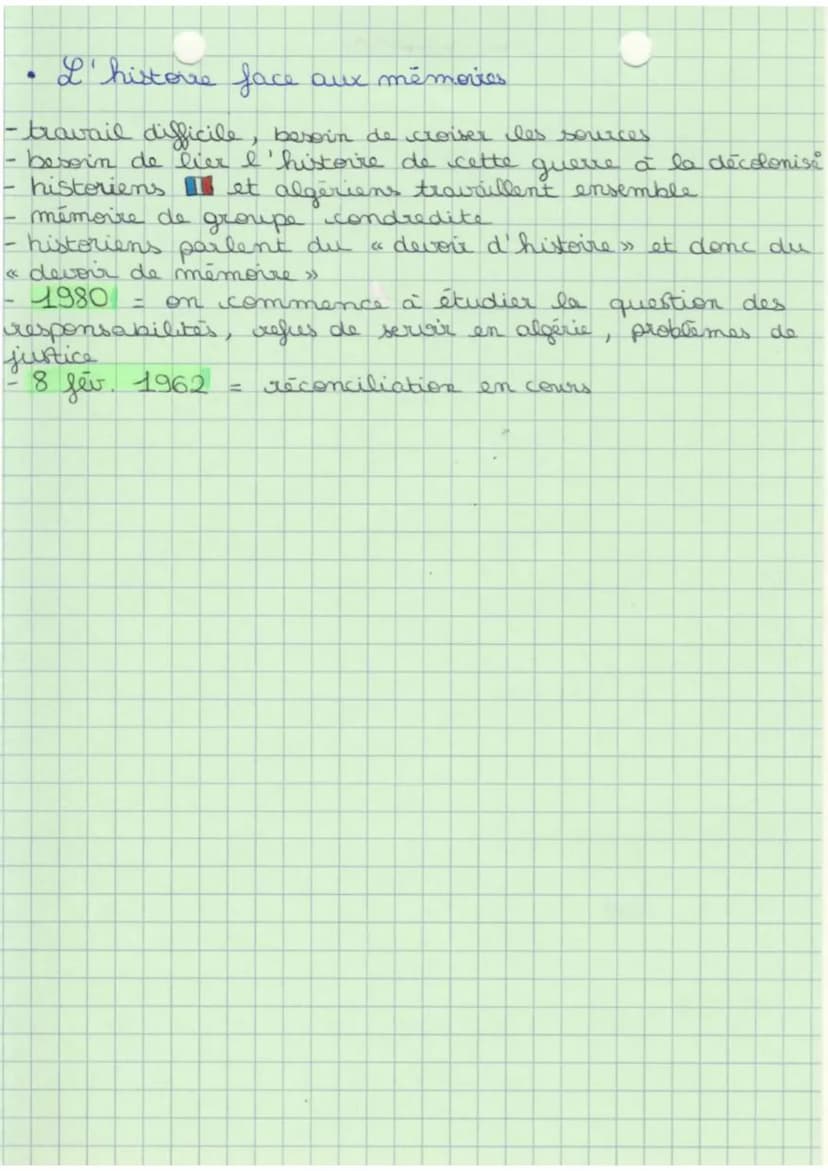 • L'histoire face aux mémoires
- travail difficile, besoin de croiser les sources
- besoin de lier l'histoire de cette guerre à la décolonisé
- historiens et algériens travaillent ensemble
- mémoire de groupe condredite
- historiens parlent du « devoir d'histoire » et donc du
« devoir de mémoire »
- 1980 = on commence à étudier la question des
responsabilités, refus de servir en algérie, problèmes de
justice
- 8 fév. 1962 = réconciliation en cours